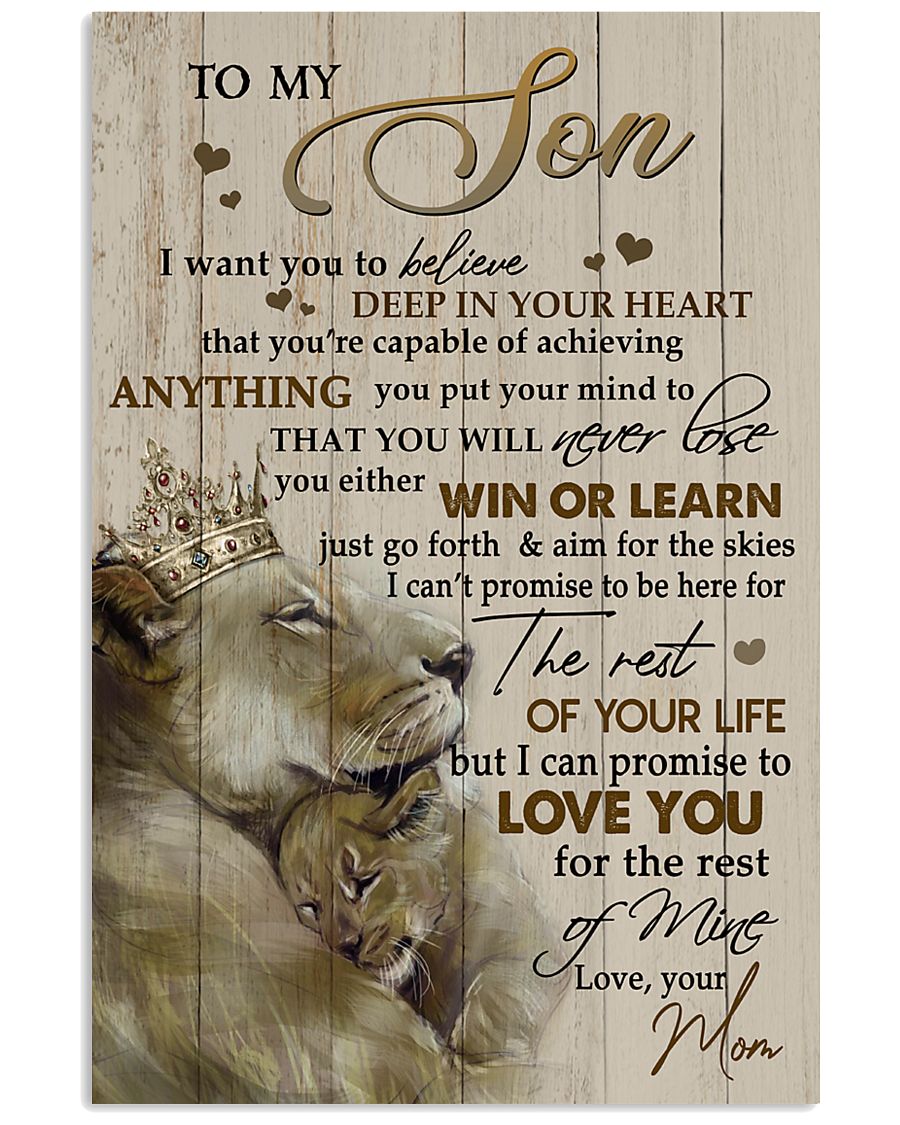 TO MY Son
I want you to believe
DEEP IN YOUR HEART
that you're capable of achieving
ANYTHING you put your mind to
THAT YOU WILL never lose
you either WIN OR LEARN
just go forth & aim for the skies
I can't promise to be here for
The rest
OF YOUR LIFE
but I can promise to
LOVE YOU
for the rest
of Mine
Love, your
Mom